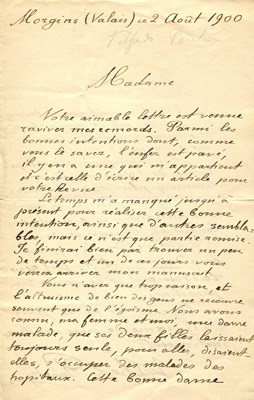 Morgins (Valais) ce 2 Août 1900
Madame
Votre aimable lettre est venue
raviver mes remords. Parmi les
bonnes intentions dont, comme
vous le savez, l'enfer est pavé,
il y en a une qui m'appartient
et c'est celle d'écrire un article pour
votre Revue.
Le temps m'a manqué jusqu'à
présent pour réaliser cette bonne
intention, ainsi que d'autres sembla-
bles, mais ce n'est que partie remise.
Je finirai bien par trouver un peu
de temps et un de ces jours vous
verrez arriver mon manuscrit.
Vous n'avez que trop raison, et
l'altruisme de bien des gens ne recouvre
souvent que de l'égoïsme. Nous avons
connu, ma femme et moi, une dame
malade, que ses deux filles laissaient
toujours seule, pour aller, disaient-
elles, s'occuper des malades des
hopitaux. Cette bonne dame